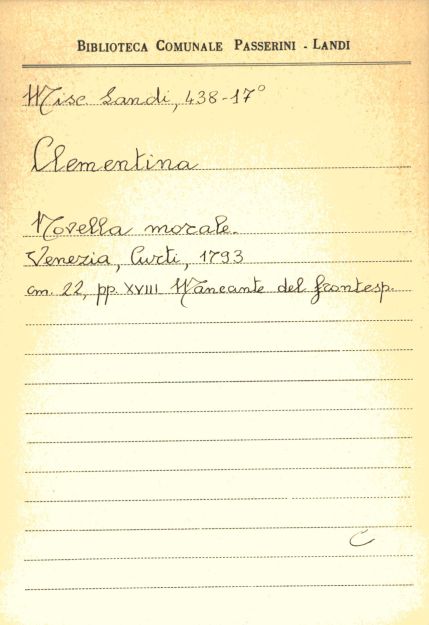 BIBLIOTECA COMUNALE PASSERINI - LANDI
Misc. Landi, 438-17°
Clementina
Novella morale.
Venezia, Curti, 1793
cm. 22, pp. XVIII Mancante del frontesp.
C